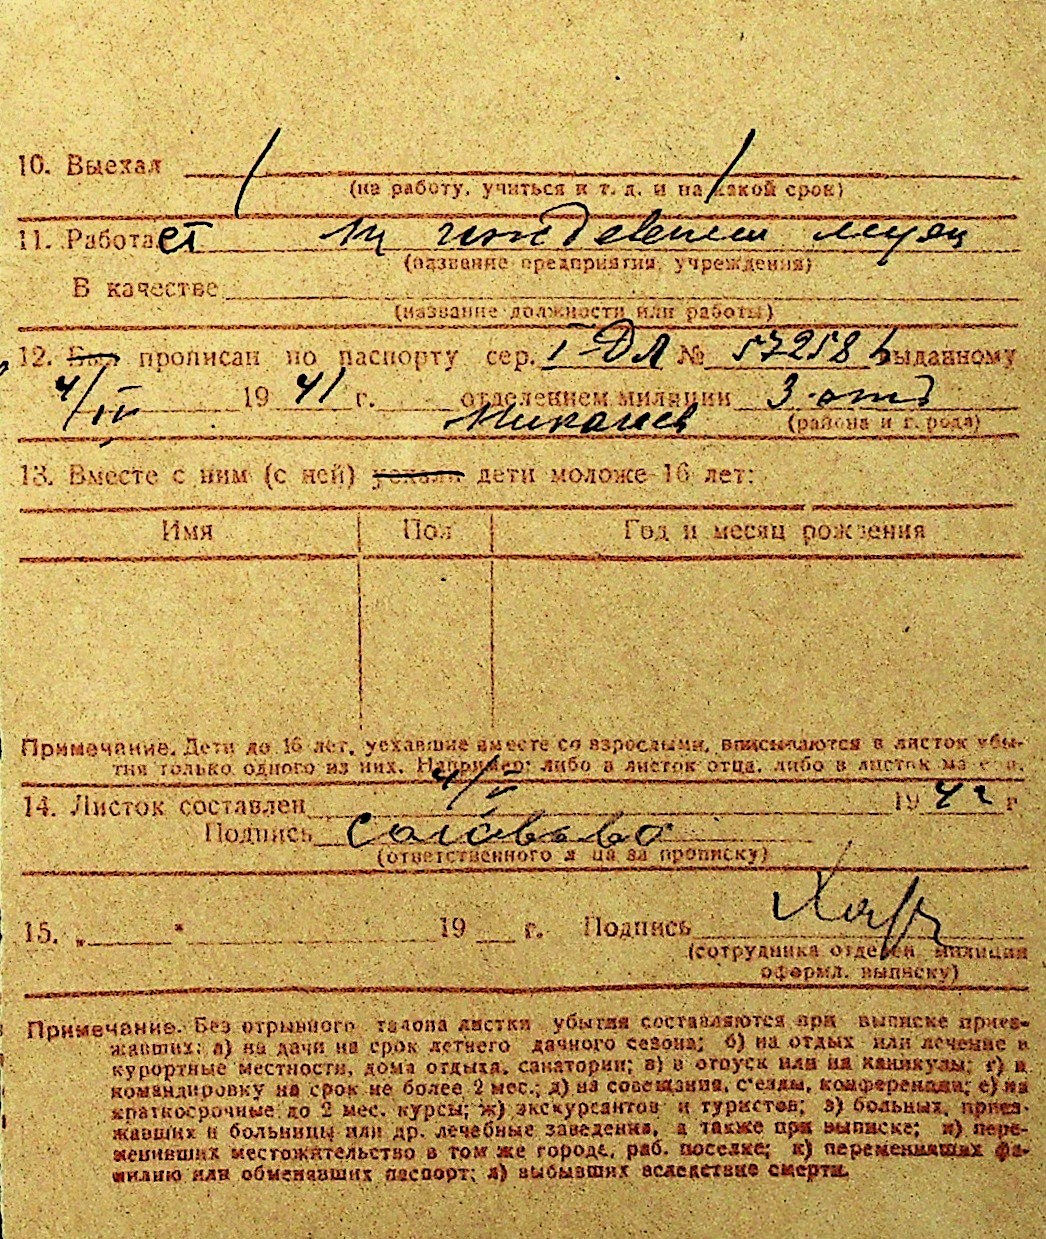 10. Выехал
(на работу, учиться и т. д. и на какой срок)
11. Работает на иждевении мужа
(название предприятия, учреждения)
В качестве
(название должности или работы)
12. Был прописан по паспорту сер. I-ДЛ № 572581 выданному
4/IV 1941 г. отделением милиции 3 отд
Николаев (района и города)
13. Вместе с ним (с ней) уехали дети моложе 16 лет:
Имя Пол Год и месяц рождения
Примечание. Дети до 16 лет, уехавшие вместе со взрослыми, вписываются в листок убы-
тия только одного из них. Например: либо в листок отца, либо в листок матери.
14. Листок составлен 4/V 1942 г
Подпись
(ответственного лица за прописку)
15. „ " 19 г. Подпись
(сотрудника отделен. милиции
оформл. выписку)
Примечание. Без отрывного талона листки убытия составляются при выписке приез-
жавших: а) на дачи на срок летнего дачного сезона; б) на отдых или лечение в
курортные местности, дома отдыха, санатории; в) в отпуск или на каникулы; г) в
командировку на срок не более 2 мес.; д) на совещания, с'езды, конференции; е) на
краткосрочные до 2 мес. курсы; ж) экскурсантов и туристов; з) больных, приез-
жавших в больницы или др. лечебные заведения, а также при выписке; и) пере-
менивших местожительство в том же городе, раб. поселке; к) переменивших фа-
милию или обменявших паспорт; л) выбывших вследствие смерти.